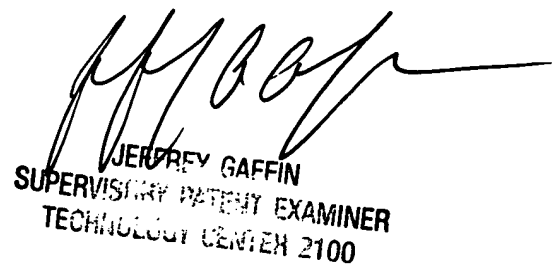 JEFFREY GAFFIN
SUPERVISORY PATENT EXAMINER
TECHNOLOGY CENTER 2100